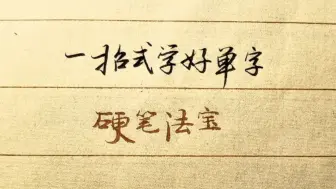 一招式学好单字
硬笔法宝